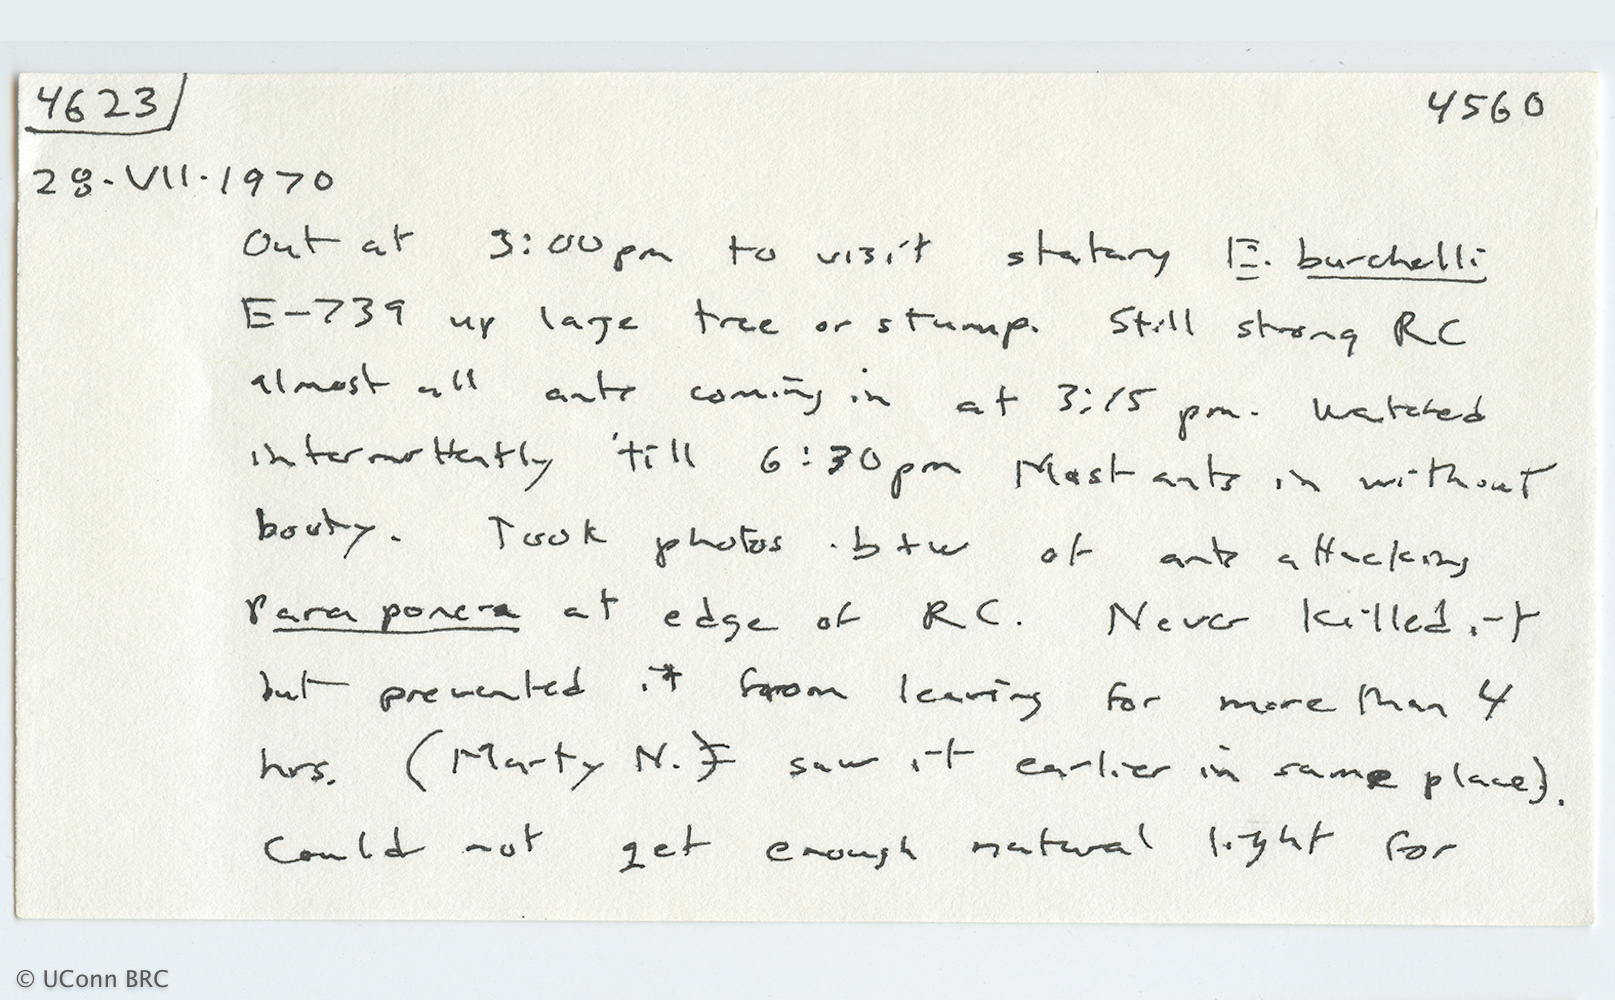 4623 4560
28.VII.1970
Out at 3:00pm to visit statary E. burchelli
E-739 up large tree or stump. Still strong RC
almost all ants coming in at 3:15 pm. Watched
intermittently 'till 6:30pm Most ants in without
booty. Took photos b+w of ants attacking
Paraponera at edge of RC. Never killed it
but prevented it from leaving for more than 4
hrs. (Marty N. saw it earlier in same place).
Could not get enough natural light for
© UConn BRC